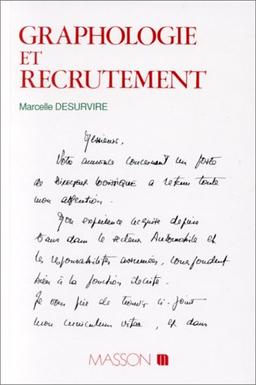 GRAPHOLOGIE
ET
RECRUTEMENT
Marcelle DESURVIRE
Messieurs,
Votre annonce concernant un poste
de Directeur LOGISTIQUE a retenu toute
mon attention.
Mon expérience acquise depuis
dans le secteur Automobile et
les responsabilités assumées, correspondent
bien à la fonction décrite.
Je vous prie de trouver ci-joint
mon curriculum vitae, et dans
MASSON